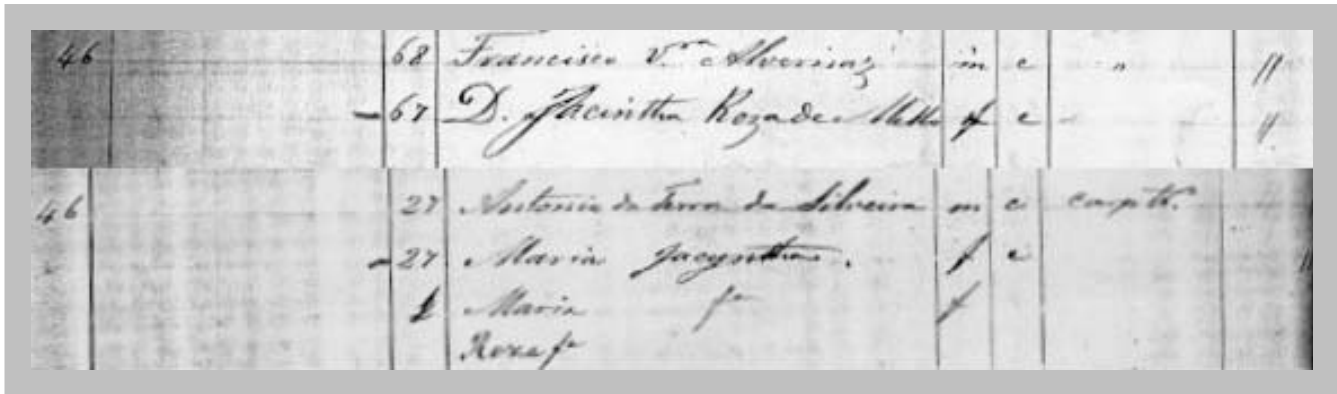 46 68 Francisco V.ra Alvernaz m c " "
67 D. Jacintha Roza de Mello f c "
46 27 Antonio da Terra da Silveira m c carptr.
27 Maria Jacyntha. f c "
1 Maria fa f
Roza fa